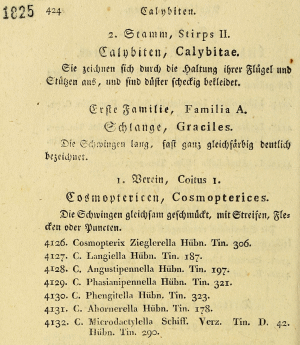 1825
424 Calybiten.
2. Stamm, Stirps II.
Calybiten, Calybitae.
Sie zeichnen sich durch die Haltung ihrer Flügel und
Stützen aus, und sind düster scheckig bekleidet.
Erste Familie, Familia A.
Schlange, Graciles.
Die Schwingen lang, fast ganz gleichfärbig deutlich
bezeichnet.
1. Verein, Coitus 1.
Cosmoptericen, Cosmopterices.
Die Schwingen gleichsam geschmückt, mit Streifen, Fle-
cken oder Puncten.
4126. Cosmopterix Zieglerella Hübn. Tin. 306.
4127. C. Langiella Hübn. Tin. 187.
4128. C. Angustipennella Hübn. Tin. 197.
4129. C. Phasianipennella Hübn. Tin. 321.
4130. C. Phengitella Hübn. Tin. 323.
4131. C. Ahornerella Hübn. Tin. 178.
4132. C. Microdactylella Schiff. Verz. Tin. D. 42.
Hübn. Tin. 290.